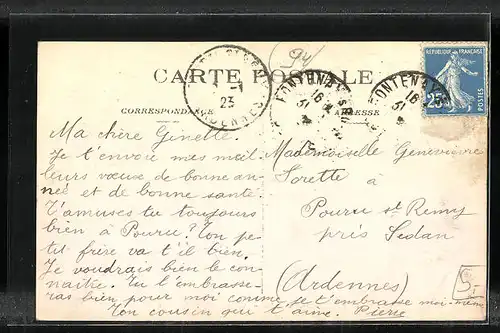 (94)
CARTE POSTALE
CORRESPONDANCE
ADRESSE
REPUBLIQUE FRANÇAISE
25c
23
ARDENNES
FONTENAY SOUS
16
31
FONTENAY
16
31
Ma chère Ginette
Je t'envoie mes meil
leurs vœux de bonne an-
née et de bonne santé.
T'amuses tu toujours
bien à Pouru? Ton pe-
tit frère va t'il bien.
Je voudrais bien le con-
naître. Tu l'embrasse-
ras bien pour moi comme je t'embrasse moi-même
Ton cousin qui t'aime. Pierre
Mademoiselle Geneviève
Lorette à
Pouru st Remy
près Sedan
(Ardennes)